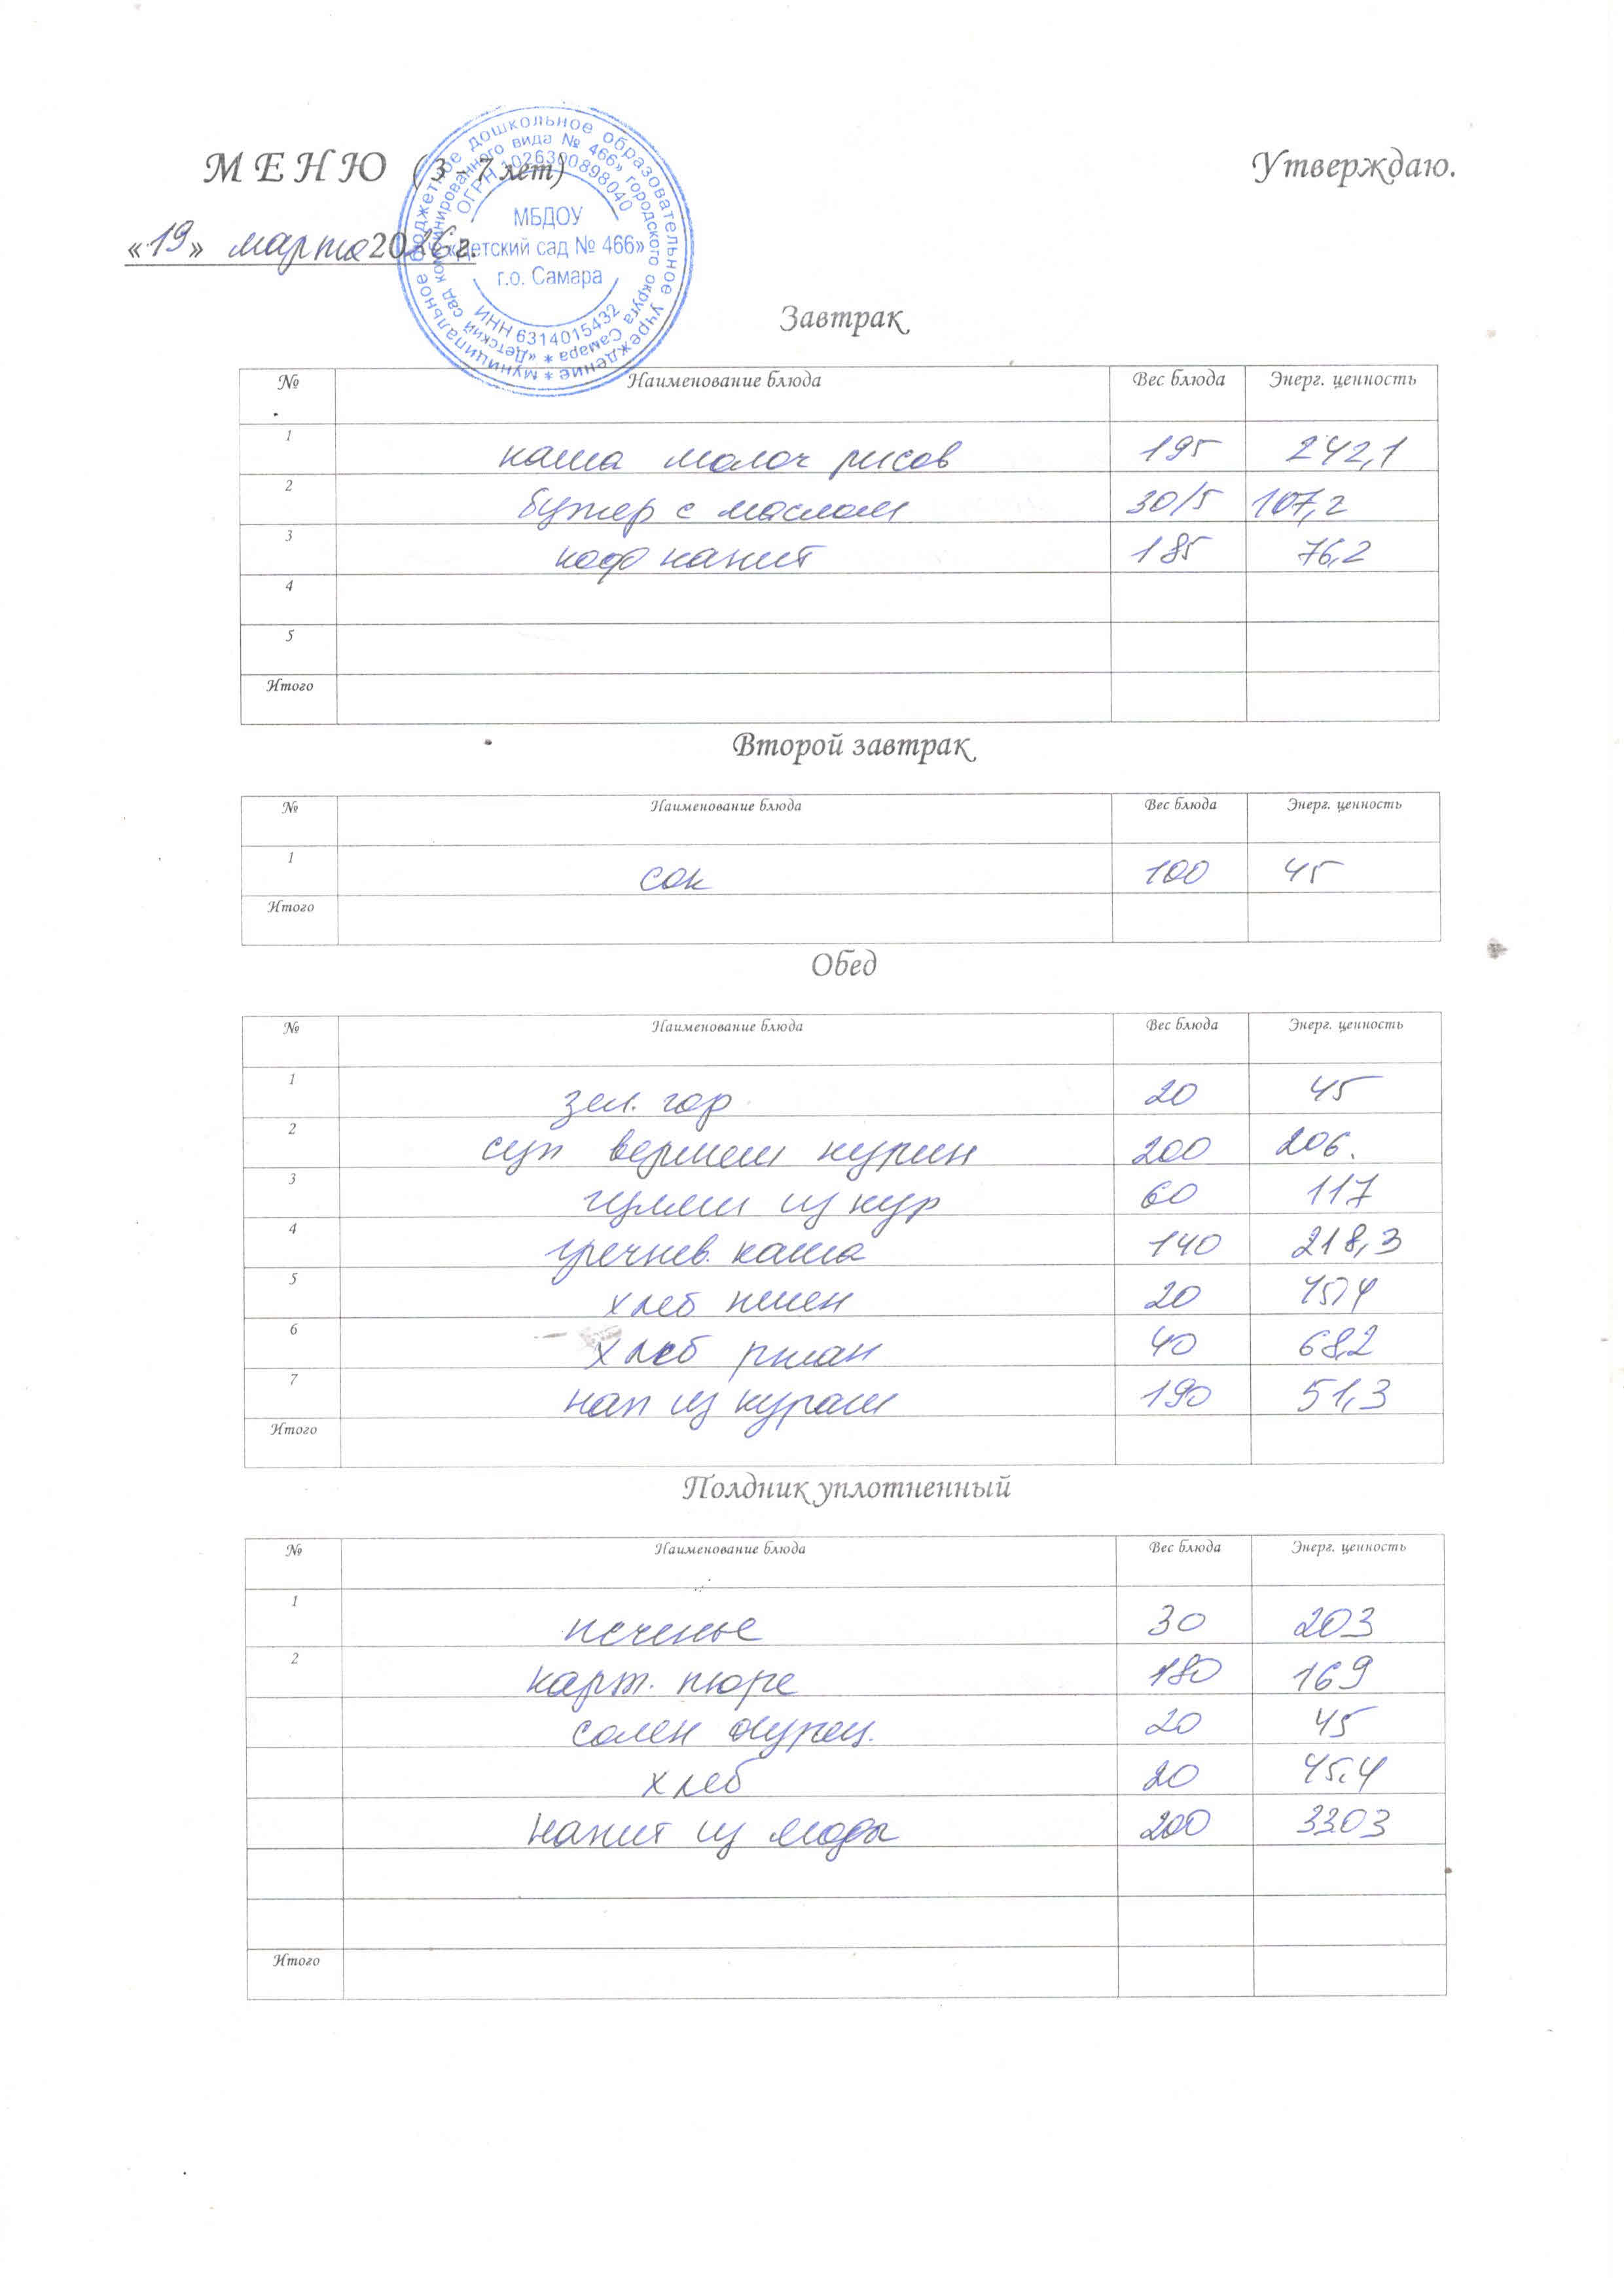 МЕНЮ (3 - 7 лет) Утверждаю.
«19» марта 2026г.
муниципальное бюджетное дошкольное образовательное учреждение *
«Детский сад комбинированного вида № 466» городского округа Самара *
ОГРН 1026300898040
МБДОУ
«Детский сад № 466»
г.о. Самара
ИНН 6314015432
Завтрак
№ Наименование блюда Вес блюда Энерг. ценность
1 каша молоч рисов 195 242,1
2 бутер с маслом 30/5 107,2
3 коф напит 185 76,2
4
5
Итого
Второй завтрак
№ Наименование блюда Вес блюда Энерг. ценность
1 сок 100 45
Итого
Обед
№ Наименование блюда Вес блюда Энерг. ценность
1 зел. гор 20 45
2 суп вермеш курин 200 206.
3 гуляш из кур 60 117
4 гречнев. каша 140 218,3
5 хлеб пшен 20 45,4
6 хлеб ржан 40 68,2
7 нап из кураги 190 51,3
Итого
Полдник уплотненный
№ Наименование блюда Вес блюда Энерг. ценность
1 печенье 30 203
2 карт. пюре 180 169
солен огурец. 20 45
хлеб 20 45.4
напит из 200
Итого